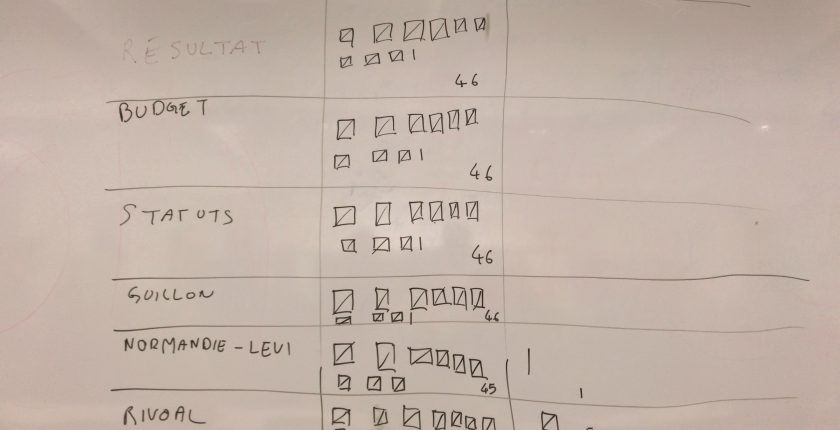 RÉSULTAT
46
BUDGET
46
STATUTS
46
GUILLON
46
NORMANDIE-LEVI
45
1
RIVOAL